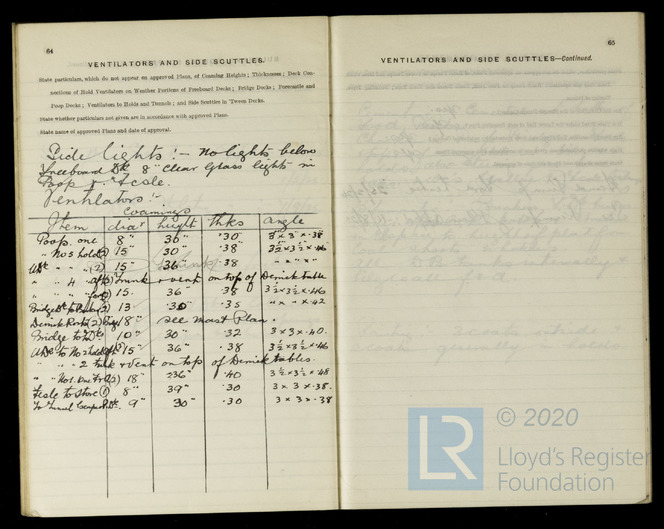 64
VENTILATORS AND SIDE SCUTTLES.
State particulars, which do not appear on approved Plans, of Coaming Heights; Thicknesses; Deck Con-
nections of Hold Ventilators on Weather Portions of Freeboard Decks; Bridge Decks; Forecastle and
Poop Decks; Ventilators to Holds and Tunnels; and Side Scuttles in 'Tween Decks.
State whether particulars not given are in accordance with approved Plans.
State name of approved Plans and date of approval.
Side lights :- No lights below
freeboard Dk 8" clear glass lights in
Poop & Fcsle.
Ventilators :-
Coamings
Item diar height thks angle
Poop. one 8" 36" .30 3 x 3 x .38
" No 5 hold (2) 15" 30" .38 3½ x 3½ x .46
" " (2) 15" 36" .38 " x " x "
" " 4 " Trunk & vent on top of Derrick table
" " " 15. 36" .38 3½ x 3½ x .46
Bridge 13" 30" .35 " x " x .42
Derrick (2) 18" see mast Plan.
Bridge to 10" 30" .32 3 x 3 x .40.
to No 3 hold 15" 36" .38 3½ x 3½ x .46
" " 2 Trunk & Vent on top of Derrick tables.
" " No1. (2) 18" 36" .40 3½ x 3½ x .48
Fcsle to Store (1) 8" 39" .30 3 x 3 x .38.
To Tunnel 9" 30" .30 3 x 3 x .38
65
VENTILATORS AND SIDE SCUTTLES—Continued.
© 2020
LR
Lloyd's Register
Foundation